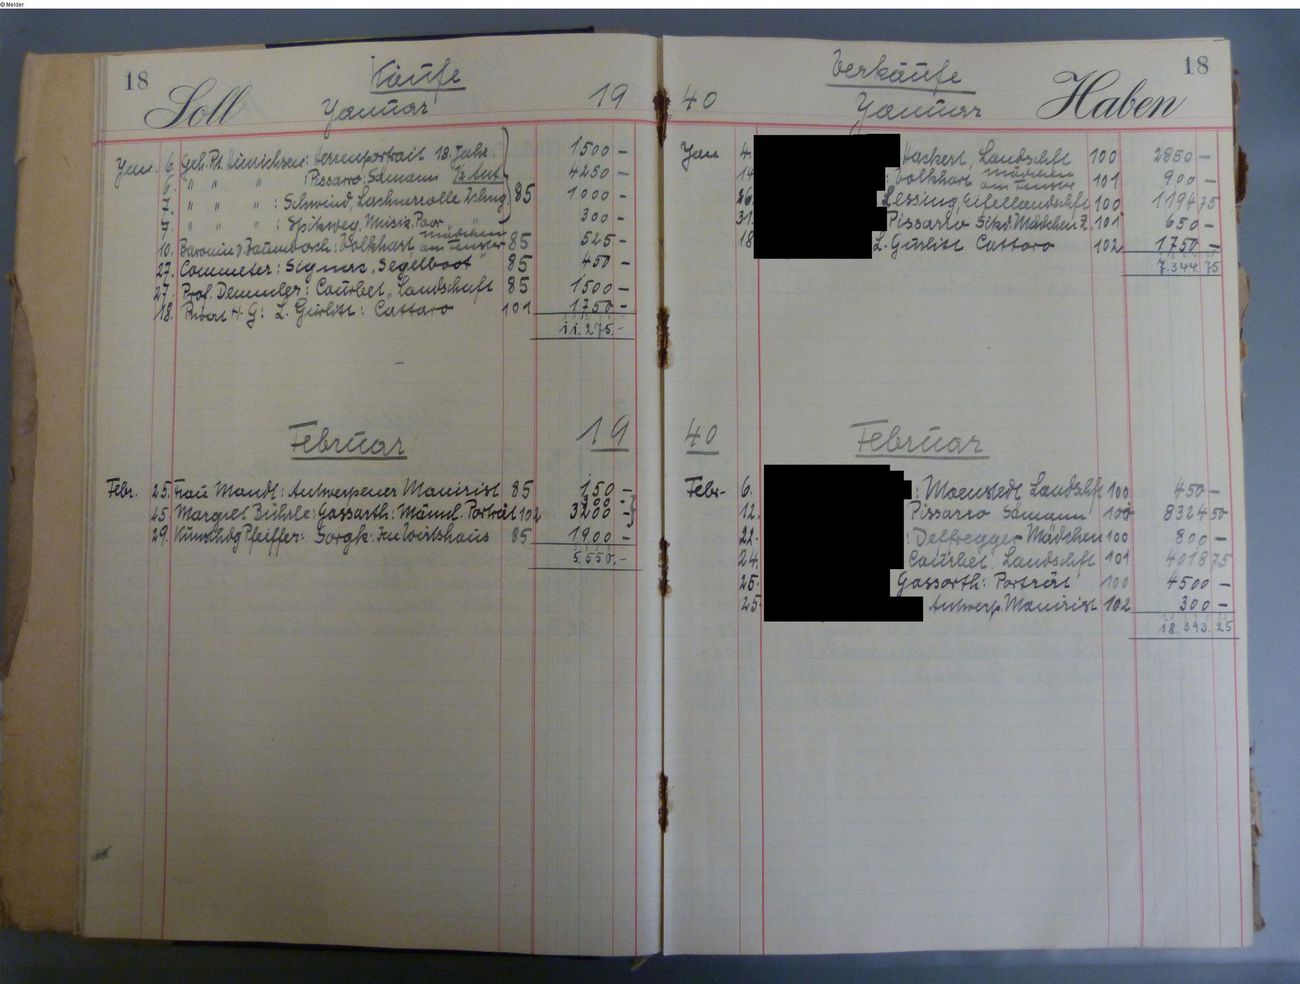 © Melder
18
Soll
Käufe
Januar
19
Jan. 6. Geh. Rt. Hinrichsen: Herrenportrait 18. Jahr. 1500 –
6. " " " : Pissarro, Sämann 4250 –
7. " " " : Schwind, Lachnerrolle 85 1000 –
7. " " " : Spitzweg, Musiz. Paar " 300 –
10. Baronin v. Baumbach: Volkhart Mädchen am Fenster 85 525 –
27. Commeter: Signac „Segelboot" 85 450 –
27. Prof. Demmler: Courbet „Landschaft 85 1500 –
18. Privat H. G: L. Gurlitt: Cattaro 101 1750 –
11.275.–
Februar 19
Febr. 25. Frau Mandl: Antwerpener Manirist 85 150 –
25. Margret Bührle: Gassarth: Männl. Porträt 102 300 – 3200 –
29. Kunsthdg Pfeiffer: Sorgh: Im Wirtshaus 85 1900 –
5.550.–
40
Verkäufe
Januar
Haben
18
Jan 4. Hackert, Landschft 100 2850 –
14. : Volkhart Mädchen am Fenster 101 900 –
26. Lessing, Eifellandschft 100 1194 75
31. Pissarro Sitzd. Mädchen Z. 101 650 –
18 L. Gurlitt Cattaro 102 1750 –
7.344.75
40
Februar
Febr. 6. : Landschft 100 450 –
12. Pissarro Sämann 100 8324 50
22. : Defregger Mädchen 100 800 –
24. Courbet, Landschft 101 4018 75
25. Gassarth: Porträt 100 4500 –
25. Antwerp. Manirist 102 300 –
18.393.25